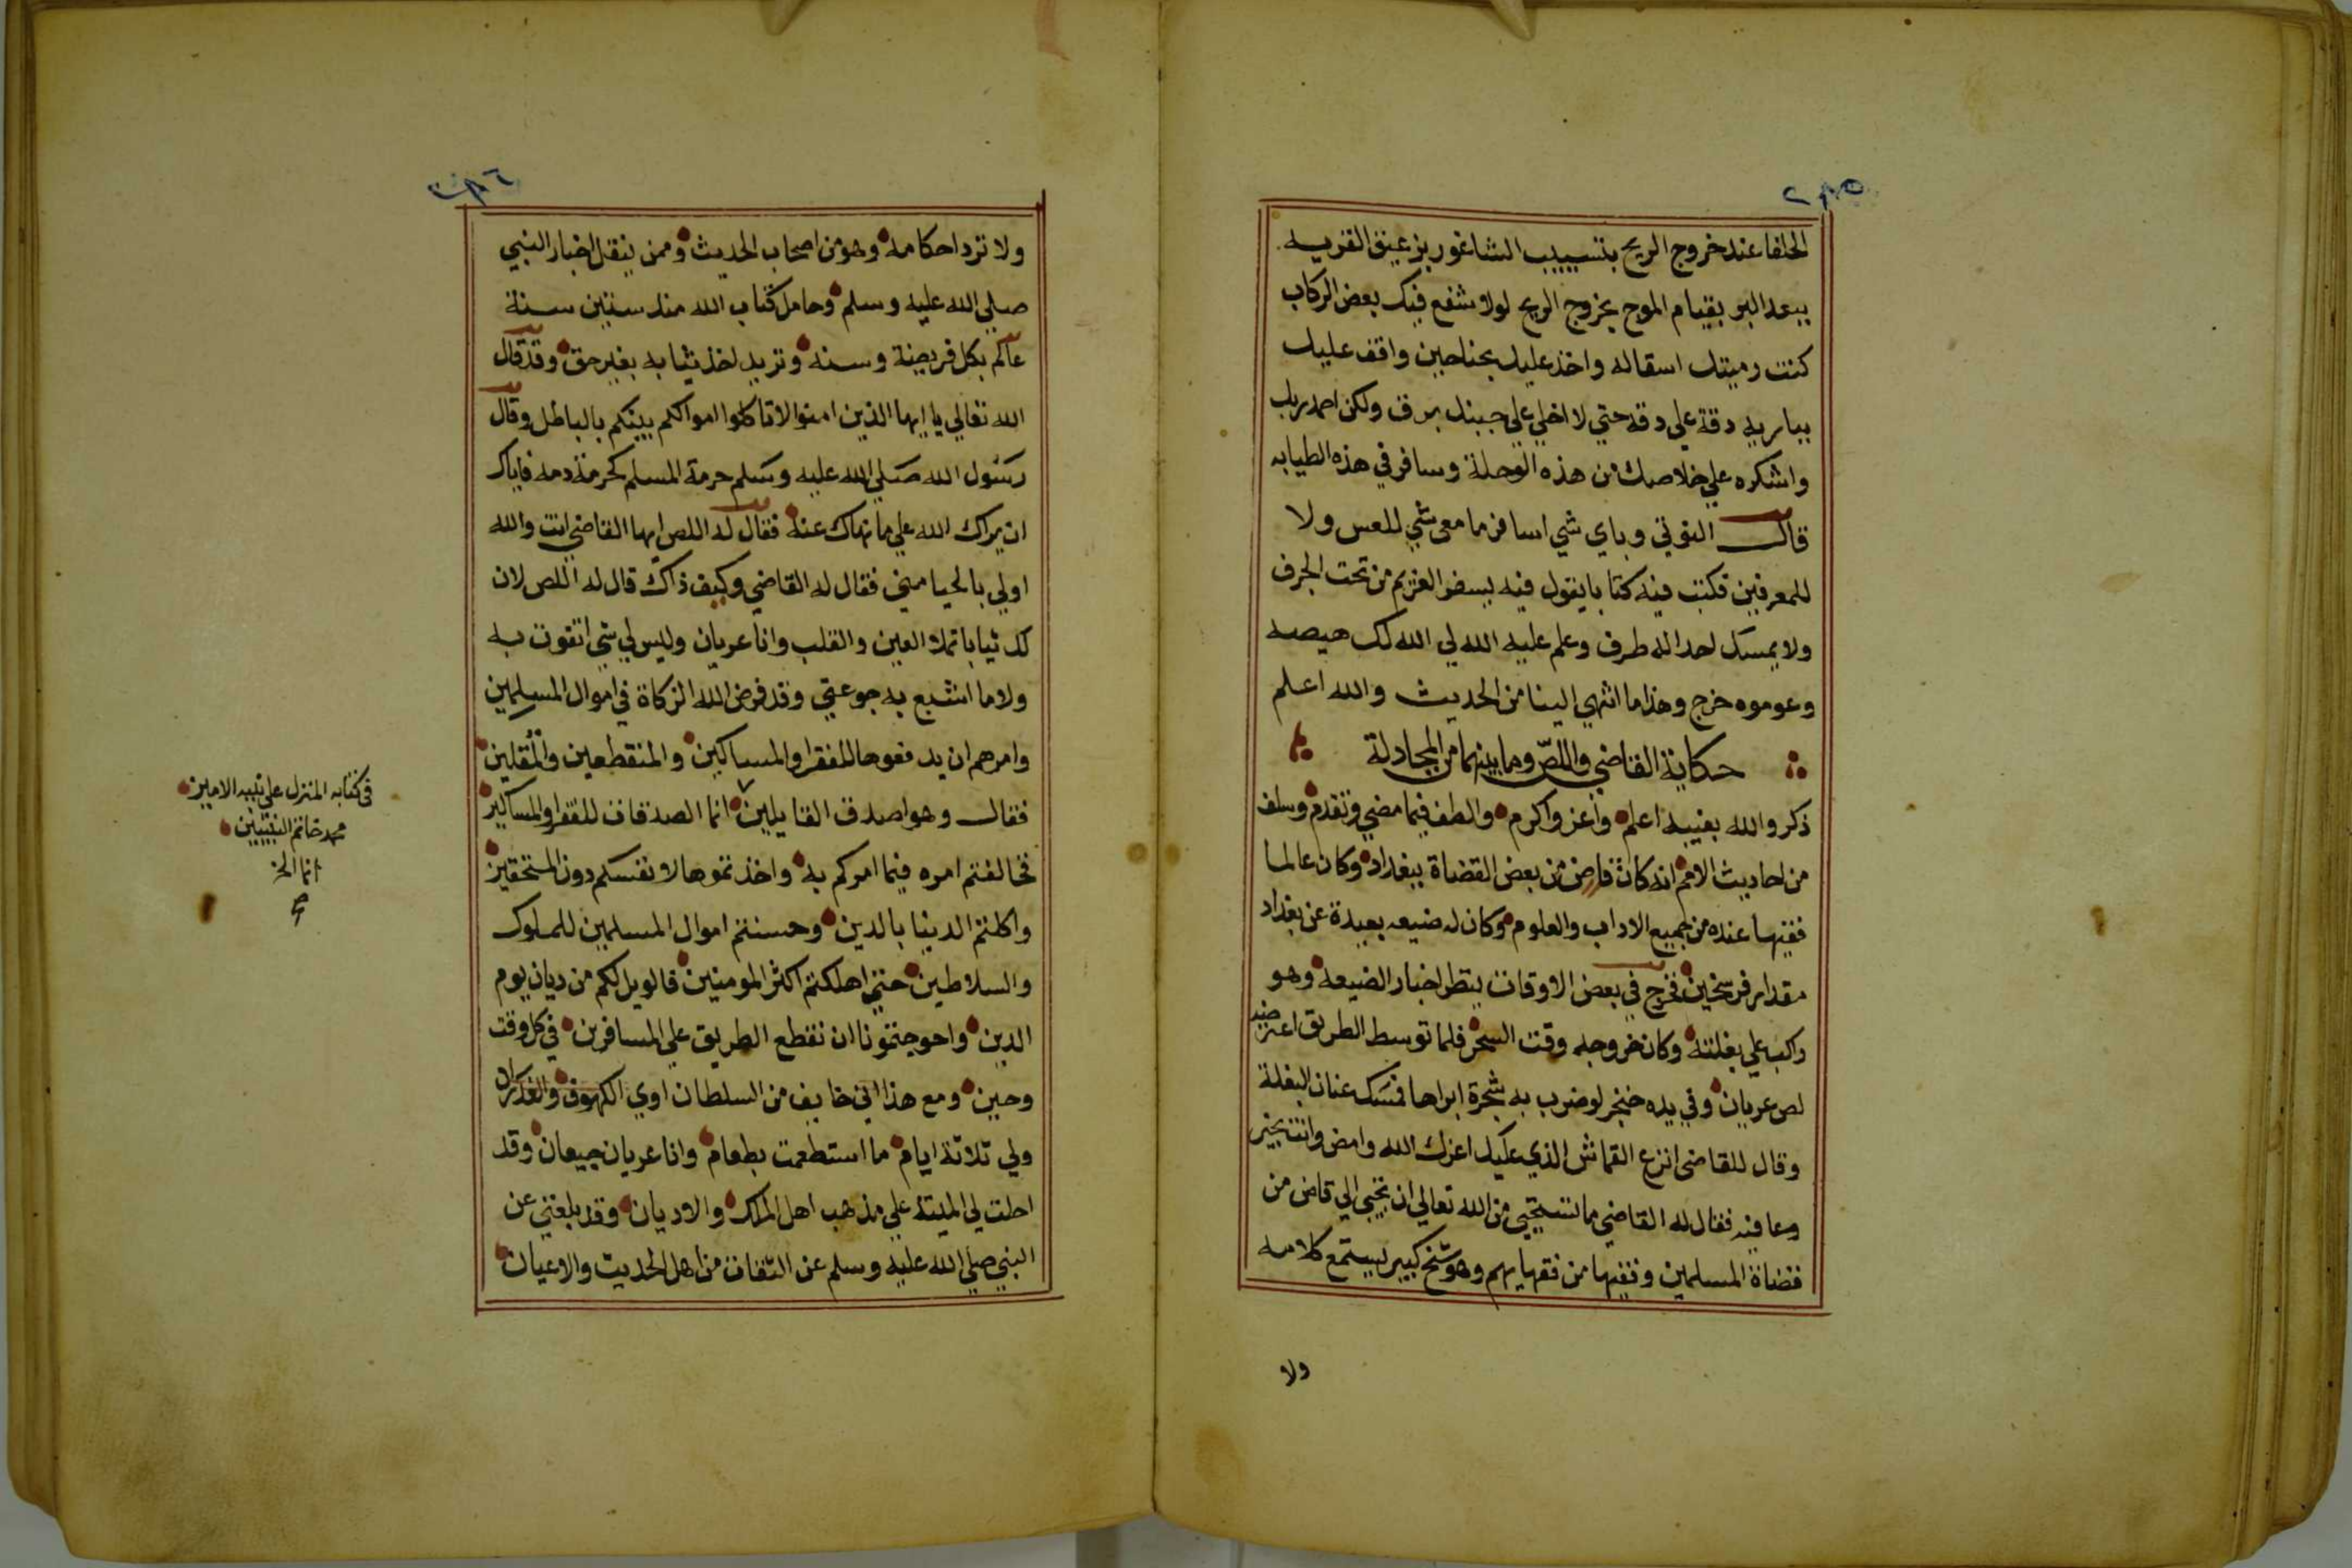 ٢٨٥
الحلفا عند خروج الريح بتسييب الشاغور بزعيق القريه
ببعد البر بقيام الموج بخروج الريح لولا شفع فيك بعض الركاب
كنت رميتك اسقاله واخذ عليك بجناحين واقف عليك
بباريه دقة علي دقه حتي لا اخلي علي جبينك برق ولكن احمد ربك
واشكره علي خلاصك من هذه الوحلة وسافر في هذه الطيابه
قال النوتي وباي شي اسافر ما معى شي للعس ولا
للمعرفين فكتب فيه كتابا يقول فيه من تحت الجرف
ولا يمسك لحد الله طرف وعلم عليه الله لي الله لك هيصه
وعوموه خرج وهذا ما انتهي الينا من الحديث والله اعلم
حكاية القاضي واللص وما بينهما من المجادلة
ذكر والله بغيبه اعلم واعز واكرم والطف فيما مضي وتقدم وسلف
من احاديث الامم انه كان قاض من بعض القضاة ببغداد وكان عالما
فقيها عنده من جميع الاداب والعلوم وكان له ضيعه بعيدة عن بغداد
مقدار فرسخين فخرج في بعض الاوقات ينظر اخبار الضيعة وهو
راكب علي بغلته وكان خروجه وقت السحر فلما توسط الطريق اعترضه
لص عريان وفي يده خنجر لو ضرب به شجرة ابراها فمسك عنان البغلة
وقال للقاضى انزع القماش الذي عليك اعزك الله وامض وانت بخير
وعافيه فقال له القاضي ما تستحيي من الله تعالي ان تجي الي قاض من
قضاة المسلمين وفقيها من فقهايهم وهو شيخ كبير يستمع كلامه
ولا
٢٨٦
ولا ترد احكامه وهو من اصحاب الحديث وممن ينقل اخبار النبي
صلي الله عليه وسلم وحامل كتاب الله منذ ستين سنة
عالم بكل فريضة وسنه وتريد اخذ ثيابه بغير حق وقد قال
الله تعالي يا ايها الذين امنوا لا تاكلوا اموالكم بينكم بالباطل وقال
رسول الله صلي الله عليه وسلم حرمة المسلم كحرمة دمه فاياك
ان يراك الله علي ما نهاك عنه فقال له اللص ايها القاضي انت والله
اولي بالحيا مني فقال له القاضي وكيف ذاك قال له اللص لان
لك ثيابا تملا العين والقلب وانا عريان وليس لي شي اتقوت به
ولا ما اشبع به جوعتي وقد فرض الله الزكاة في اموال المسلمين
وامرهم ان يدفعوها للفقرا والمساكين والمنقطعين والمقلين
فقال وهو اصدق القايلين انما الصدقات للفقرا والمساكين
فخالفتم امره فيما امركم به واخذتموها لانفسكم دون المستحقين
واكلتم الدنيا بالدين وحسنتم اموال المسلمين للملوك
والسلاطين حتي اهلكتم اكثر المومنين فالويل لكم من ديان يوم
الدين واحوجتمونا ان نقطع الطريق علي المسافرين في كل وقت
وحين ومع هذا اني خايف من السلطان اوي الكهوف والغدران
ولي ثلاثة ايام ما استطعمت بطعام وانا عريان جيعان وقد
احلت لي الميتة علي مذهب اهل الملك والاديان وقد بلغني عن
النبي صلي الله عليه وسلم عن الثقات من اهل الحديث والاعيان
في كتابه المنزل علي نبيه الامين
محمد خاتم النبيين
انما الخ